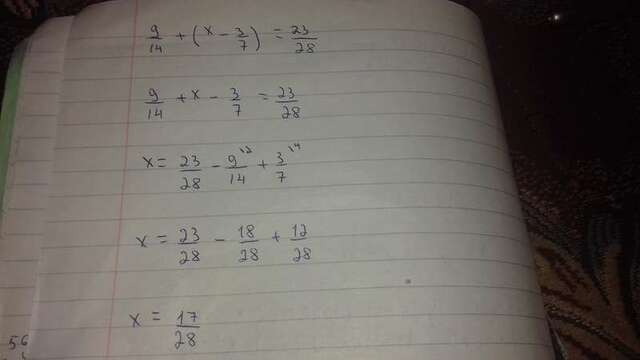 9/14 + (x - 3/7) = 23/28
9/14 + x - 3/7 = 23/28
x = 23/28 - 9/14 + 3/7
x = 23/28 - 18/28 + 12/28
x = 17/28
56